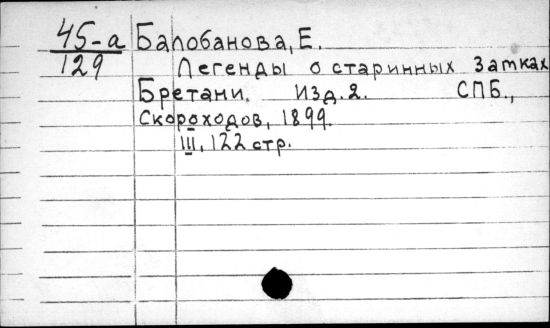 45-а Балобанова, Е.
129 Легенды о старинных затках
Бретани. Изд. 2. СПБ.,
Скороходов, 1899.
III, 122 стр.